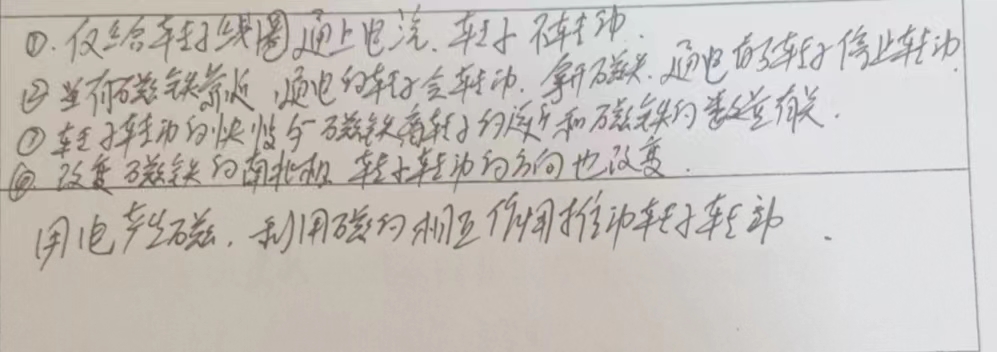 ①.仅给转子线圈通上电流.转子不转动.
②当有磁铁靠近,通电的转子会转动.拿开磁铁.通电的转子停止转动.
③转子转动的快慢与磁铁离转子的远近和磁铁的数量有关.
④.改变磁铁的南北极转子转动的方向也改变.
用电产生磁.利用磁的相互作用推动转子转动.